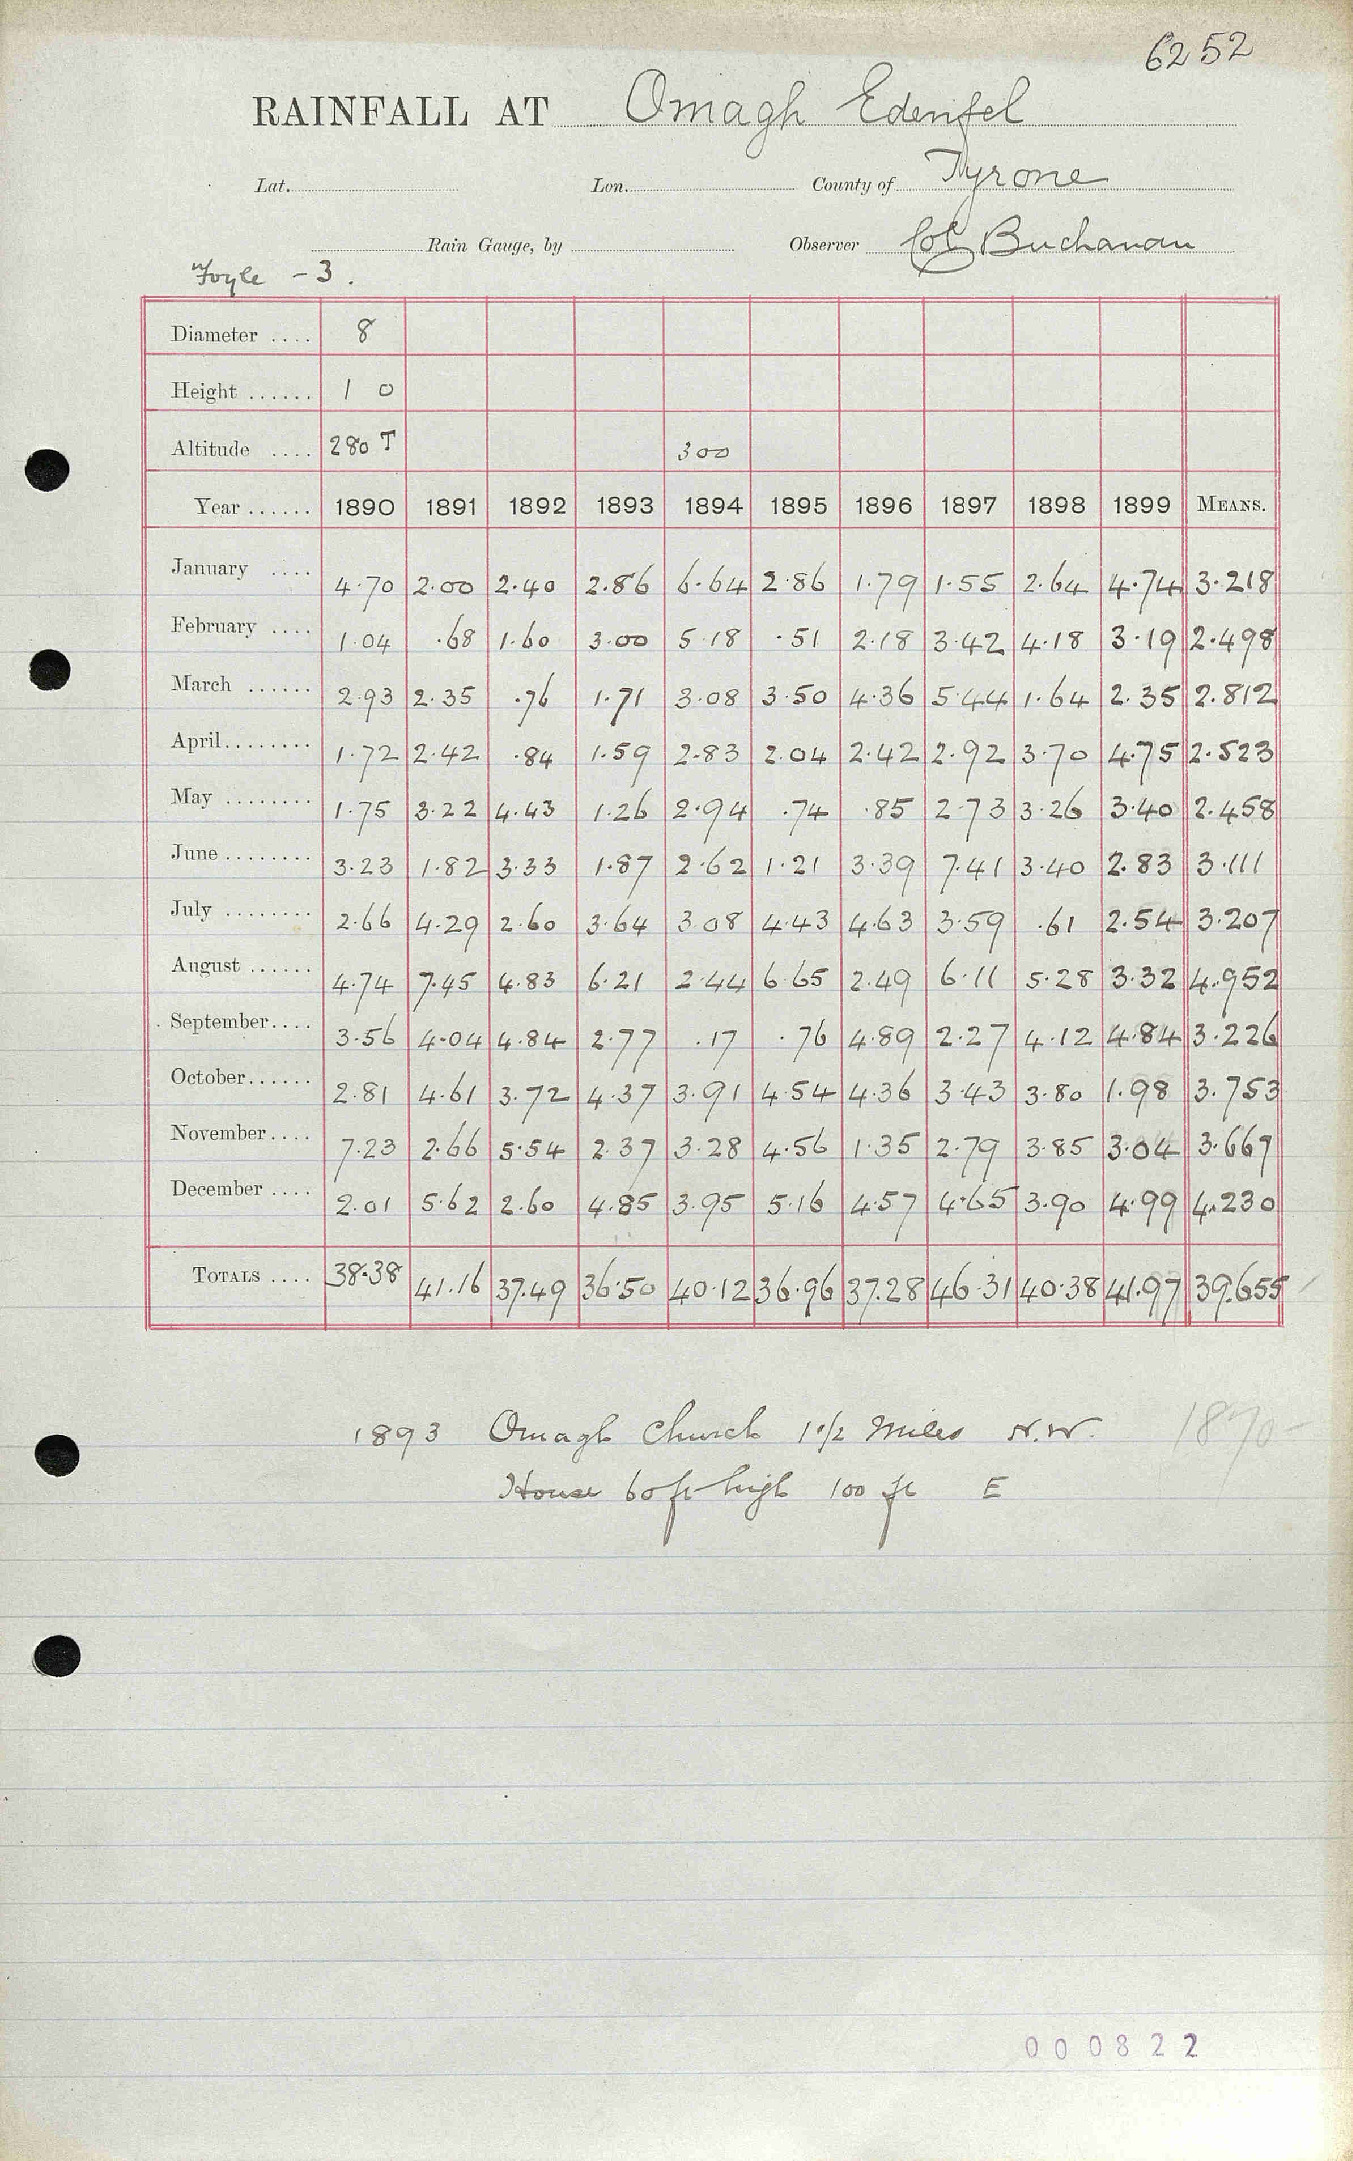 6252
RAINFALL AT Omagh Edenfel
Lat. Lon. County of Tyrone
Rain Gauge, by Observer Col Buchanan
Foyle - 3.
Diameter .... 8
Height ...... 1 0
Altitude .... 280 T 300
Year ...... 1890 1891 1892 1893 1894 1895 1896 1897 1898 1899 MEANS.
January .... 4.70 2.00 2.40 2.86 6.64 2.86 1.79 1.55 2.64 4.74 3.218
February .... 1.04 .68 1.60 3.00 5.18 .51 2.18 3.42 4.18 3.19 2.498
March ...... 2.93 2.35 .76 1.71 3.08 3.50 4.36 5.44 1.64 2.35 2.812
April........ 1.72 2.42 .84 1.59 2.83 2.04 2.42 2.92 3.70 4.75 2.523
May ........ 1.75 3.22 4.43 1.26 2.94 .74 .85 2.73 3.26 3.40 2.458
June ........ 3.23 1.82 3.33 1.87 2.62 1.21 3.39 7.41 3.40 2.83 3.111
July ........ 2.66 4.29 2.60 3.64 3.08 4.43 4.63 3.59 .61 2.54 3.207
August ...... 4.74 7.45 4.83 6.21 2.44 6.65 2.49 6.11 5.28 3.32 4.952
September.... 3.56 4.04 4.84 2.77 .17 .76 4.89 2.27 4.12 4.84 3.226
October...... 2.81 4.61 3.72 4.37 3.91 4.54 4.36 3.43 3.80 1.98 3.753
November.... 7.23 2.66 5.54 2.37 3.28 4.56 1.35 2.79 3.85 3.04 3.667
December .... 2.01 5.62 2.60 4.85 3.95 5.16 4.57 4.65 3.90 4.99 4.230
TOTALS .... 38.38 41.16 37.49 36.50 40.12 36.96 37.28 46.31 40.38 41.97 39.655
1893 Omagh Church 1 1/2 Miles N.W. 1870-
House 60 ft high 100 ft E
000822